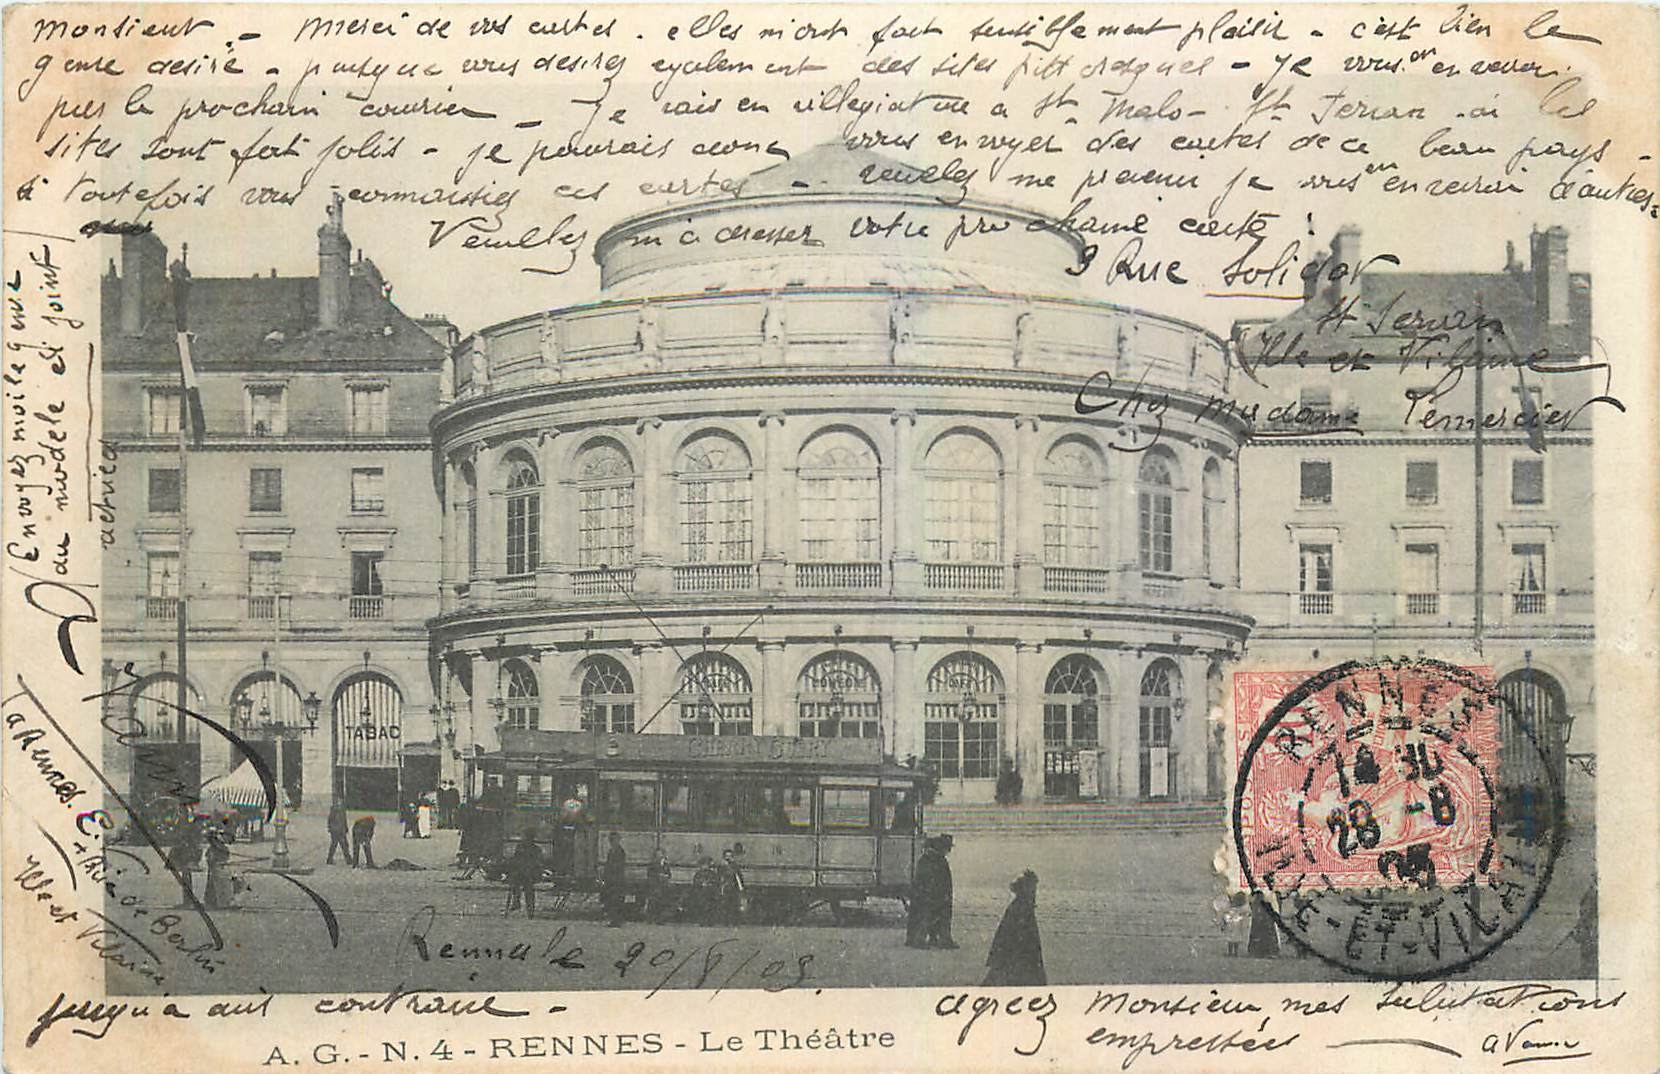 Monsieur. - Merci de vos cartes. elles m'ont fait sensiblement plaisir - c'est bien le
genre desiré - puisque vous desirez egalement des sites pittoresques - Je vous en verrai
par le prochain courrier - Je vais en villegiature a St Malo - St Servan - où les
sites sont fort jolis - je pourrais donc vous envoyer des cartes de ce beau pays -
si toutefois vous connaissiez ces cartes - veuillez me prevenir je vous en enverrai d'autres -
Veuillez m'adresser votre prochaine carte :
9 Rue Solidor
St Servan
(Ille et Vilaine)
Chez madame Lemercier
Envoyez moi le genre
du modele ci joint
A Rennes.
Rue de Berlin
Ille et Vilaine
TABAC
RENNES
ILLE-ET-VILAINE
28 -8
05
Rennes le 20/8/05.
jusqu'a avis contraire -
agreez Monsieur, mes salutations
empressées
A. G. - N. 4 - RENNES - Le Théâtre